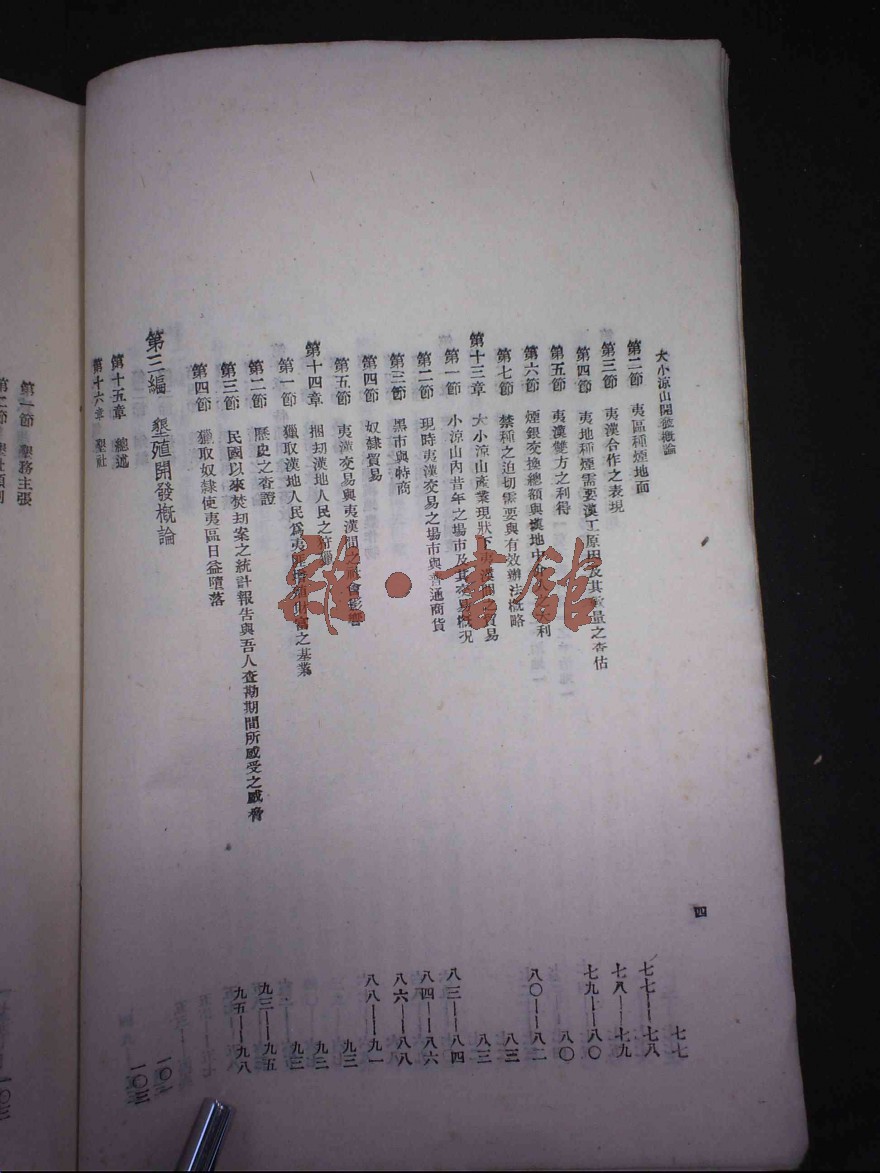 大小涼山開發概論
四
第二節 夷區種煙地面 七七
第三節 夷漢合作之表現 七七——七八
第四節 夷地種煙需要漢工原因及其數量之查估 七八——七九
第五節 夷漢雙方之利得 七九——八〇
第六節 煙銀交換總額與漢地中 利 八〇
第七節 禁種之迫切需要與有效辦法概略 八〇——八二
第十三章 大小涼山產業現狀下夷漢間之貿易 八三
第一節 小涼山內昔年之場市及其交易概況 八三
第二節 現時夷漢交易之場市與普通商貨 八三——八四
第三節 黑市與特商 八四——八六
第四節 奴隸貿易 八六——八八
第五節 夷漢交易與夷漢間之社會影響 八八——九一
第十四章 捆刧漢地人民之 九三
第一節 獵取漢地人民爲夷 增殖財富之基業 九三
第二節 歷史之查證 九三
第三節 民國以來焚刧案之統計報告與吾人查勘期間所感受之威脅 九三——九五
第四節 獵取奴隸使夷區日益墮落 九五——九八
第三編 墾殖開發概論
第十五章 總述 一〇二
第十六章 墾社 一〇三
第一節 墾務主張 一〇三
第二節
雜·書館